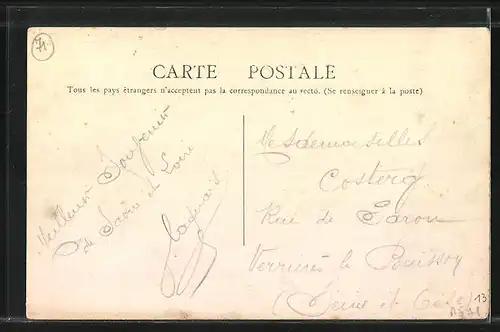 71
CARTE POSTALE
Tous les pays étrangers n'acceptent pas la correspondance au recto. (Se renseigner à la poste)
Meilleur Souvenir
de Saône et Loire
Mesdemoiselles
Costerg
Rue de
Verrières le Buisson
(Seine et Oise)
13